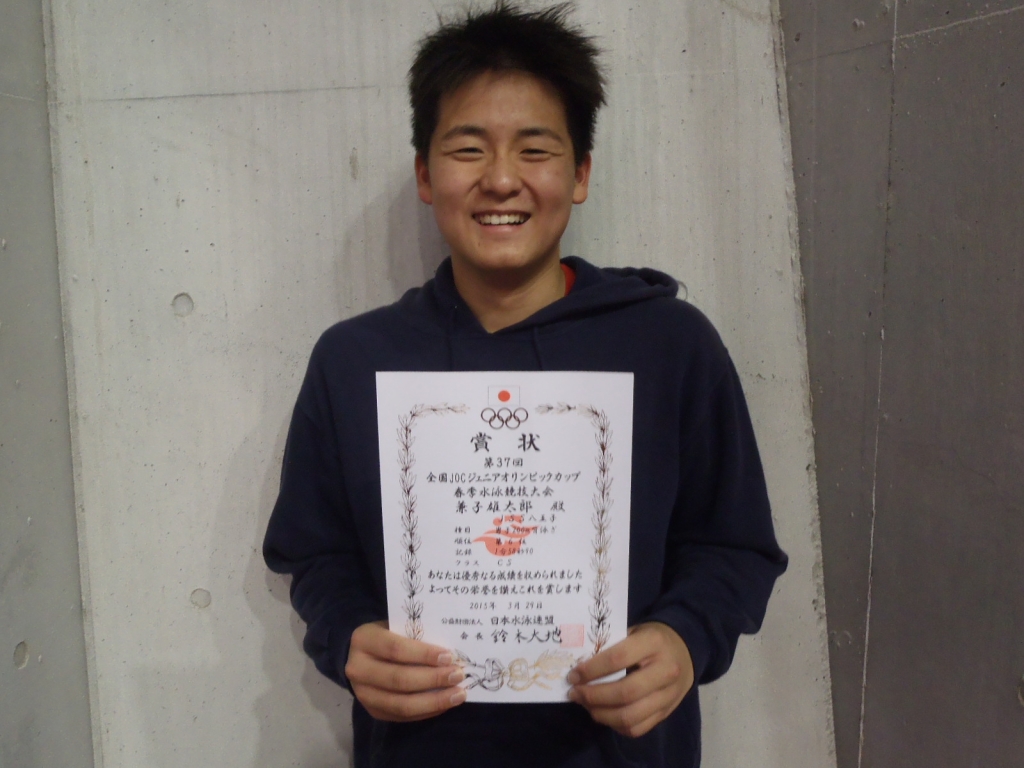 賞状
第37回
全国JOCジュニアオリンピックカップ
春季水泳競技大会
兼子雄太郎 殿
JSS八王子
種目 男子200m背泳ぎ
順位 第16位
記録
クラス CS
あなたは優秀なる成績を収められました
よってその栄誉を讃えこれを賞します
2015年 3月29日
公益財団法人 日本水泳連盟
会長 鈴木大地